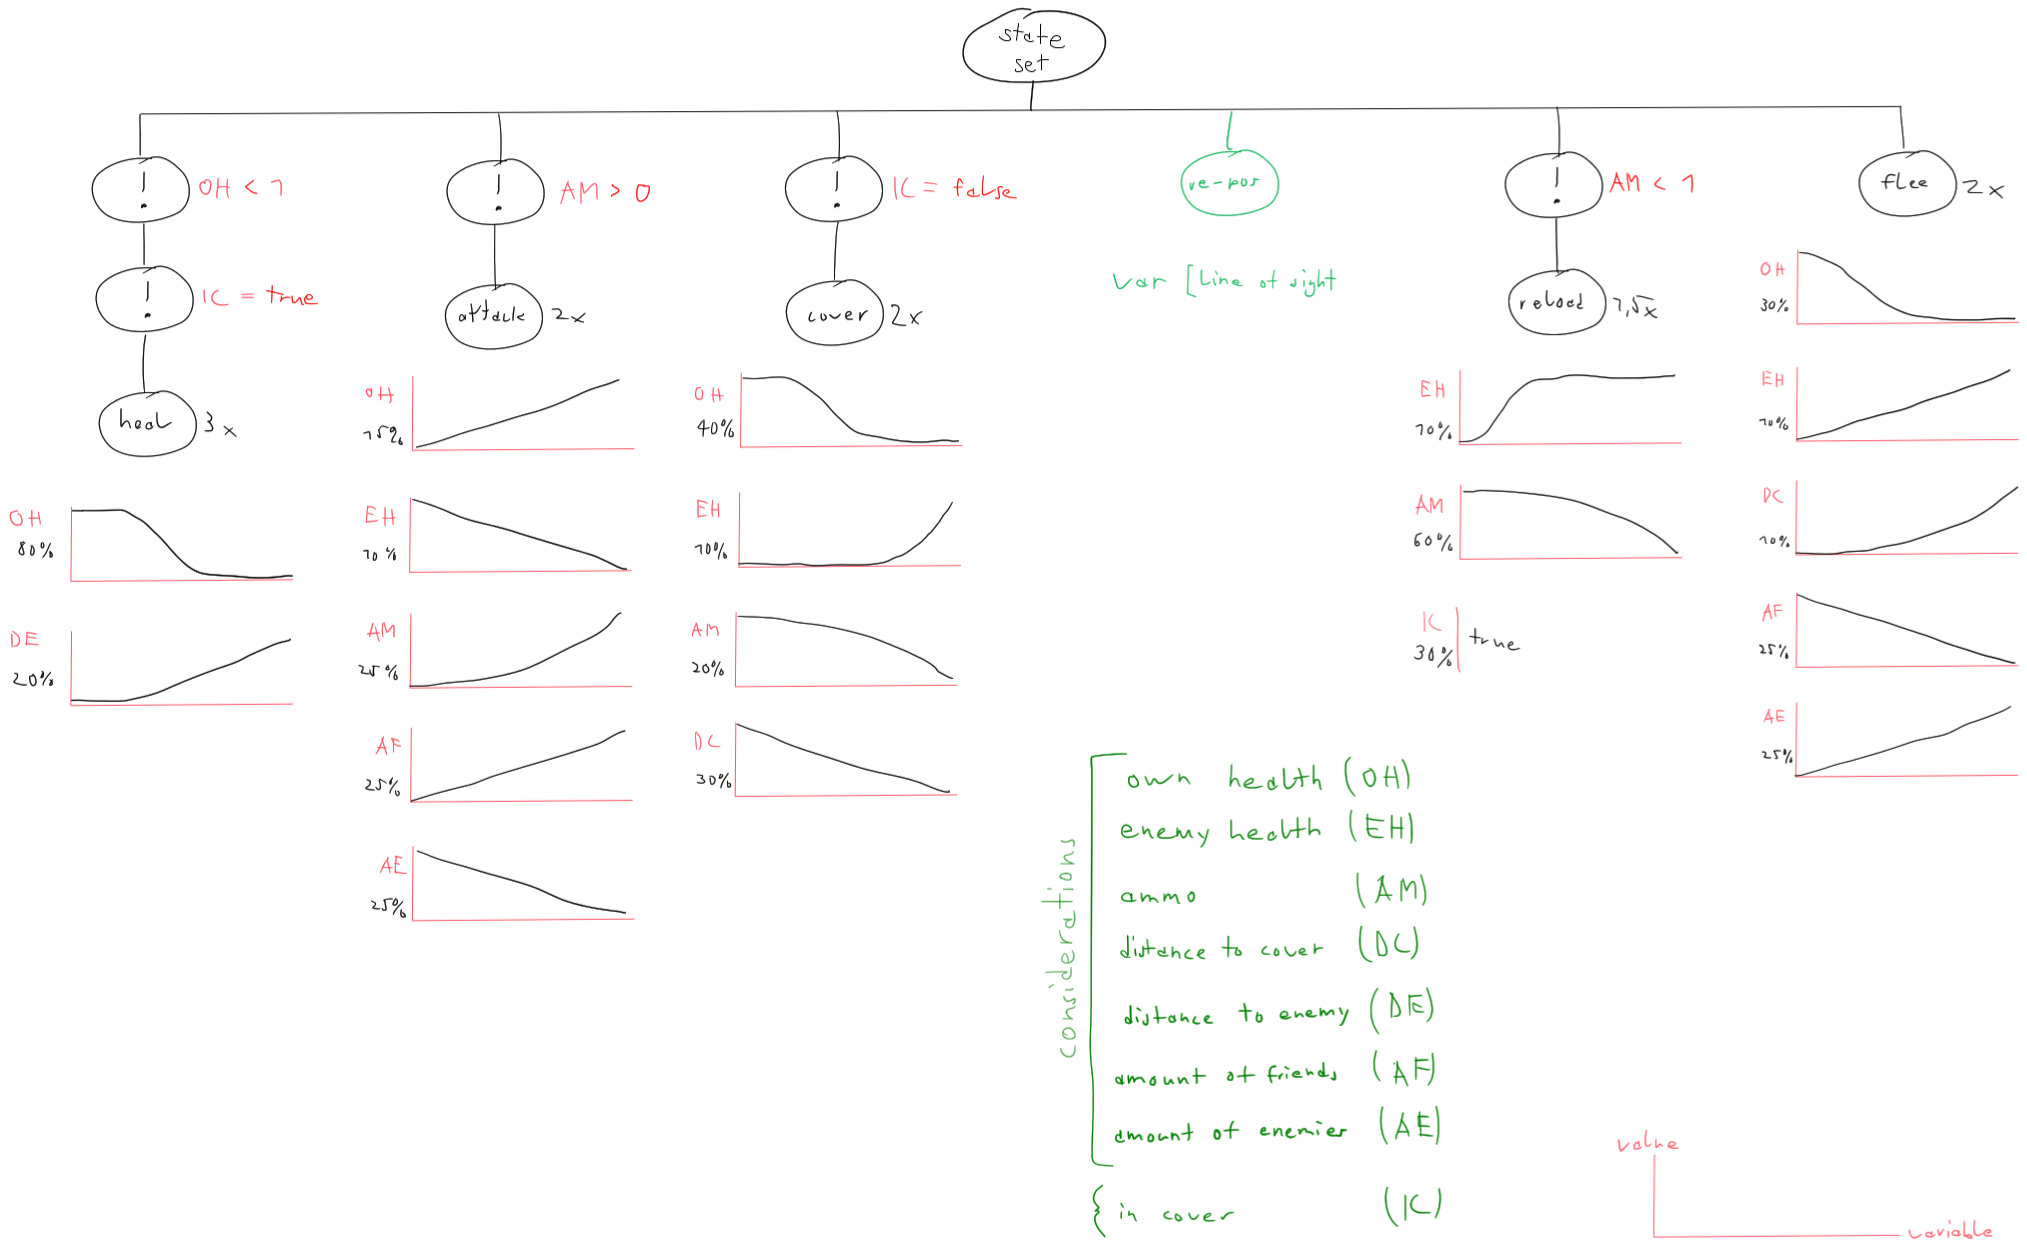 state
set
OH < 1
AM > 0
IC = false
re-pos
AM < 1
flee 2x
IC = true
heal 3x
OH
80%
DE
20%
attack 2x
OH
15%
EH
10%
AM
25%
AF
25%
AE
25%
cover 2x
OH
40%
EH
10%
AM
20%
DC
30%
var [Line of sight
reload 1,5x
EH
10%
AM
60%
IC
30%
true
OH
30%
EH
10%
DC
10%
AF
25%
AE
25%
considerations
own health (OH)
enemy health (EH)
ammo (AM)
distance to cover (DC)
distance to enemy (DE)
amount of friends (AF)
amount of enemies (AE)
in cover (IC)
value
variable